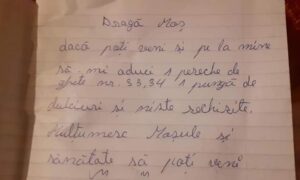 Dragă Moș
dacă poți veni și pe la mine
să-mi aduci 1 pereche de
ghete nr. 33,34 1 pungă de
dulciuri și niste rechizite.
Mulțumesc Moșule și
sănătate să poți veni